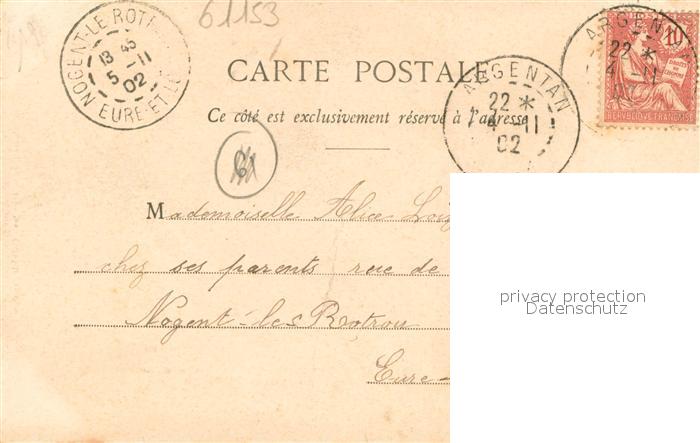 61153
NOGENT-LE-ROTR
13 45
5 -11
02
EURE-ET-L
ARGENTAN
22 *
4 -11
02
ARGENTAN
22 *
4 -11
10
REPUBLIQUE FRANÇAISE
CARTE POSTALE
Ce côté est exclusivement réservé à l'adresse
61
Mademoiselle Alice
chez ses parents rue de
Nogent-les Rotrou
Eure-
privacy protection
Datenschutz